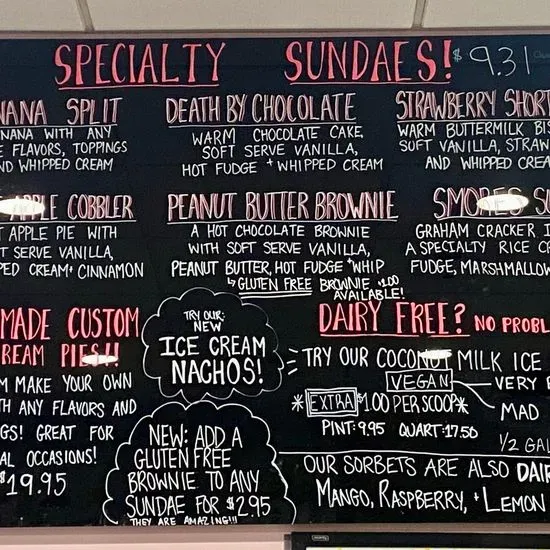 SPECIALTY SUNDAES! $9.31
NANA SPLIT
NANA WITH ANY
E FLAVORS, TOPPINGS
ND WHIPPED CREAM
DEATH BY CHOCOLATE
WARM CHOCOLATE CAKE,
SOFT SERVE VANILLA,
HOT FUDGE + WHIPPED CREAM
STRAWBERRY SHORT
WARM BUTTERMILK BIS
SOFT VANILLA, STRAW
AND WHIPPED CREA
PLE COBBLER
T APPLE PIE WITH
T SERVE VANILLA,
PED CREAM + CINNAMON
PEANUT BUTTER BROWNIE
A HOT CHOCOLATE BROWNIE
WITH SOFT SERVE VANILLA,
PEANUT BUTTER, HOT FUDGE + WHIP
↳ GLUTEN FREE BROWNIE $1.00
AVAILABLE!
SMORES SU
GRAHAM CRACKER I
A SPECIALTY RICE CR
FUDGE, MARSHMALLOW
MADE CUSTOM
REAM PIES!!
M MAKE YOUR OWN
TH ANY FLAVORS AND
NGS! GREAT FOR
AL OCCASIONS!
$19.95
TRY OUR
NEW
ICE CREAM
NACHOS!
NEW: ADD A
GLUTEN FREE
BROWNIE TO ANY
SUNDAE FOR $2.95
THEY ARE AMAZING!!!
DAIRY FREE? NO PROBL
TRY OUR COCONUT MILK ICE
VEGAN
VERY B
MAD
*EXTRA $1.00 PER SCOOP*
PINT: 9.95 QUART: 17.50
1/2 GAL
OUR SORBETS ARE ALSO DAIR
MANGO, RASPBERRY, + LEMON